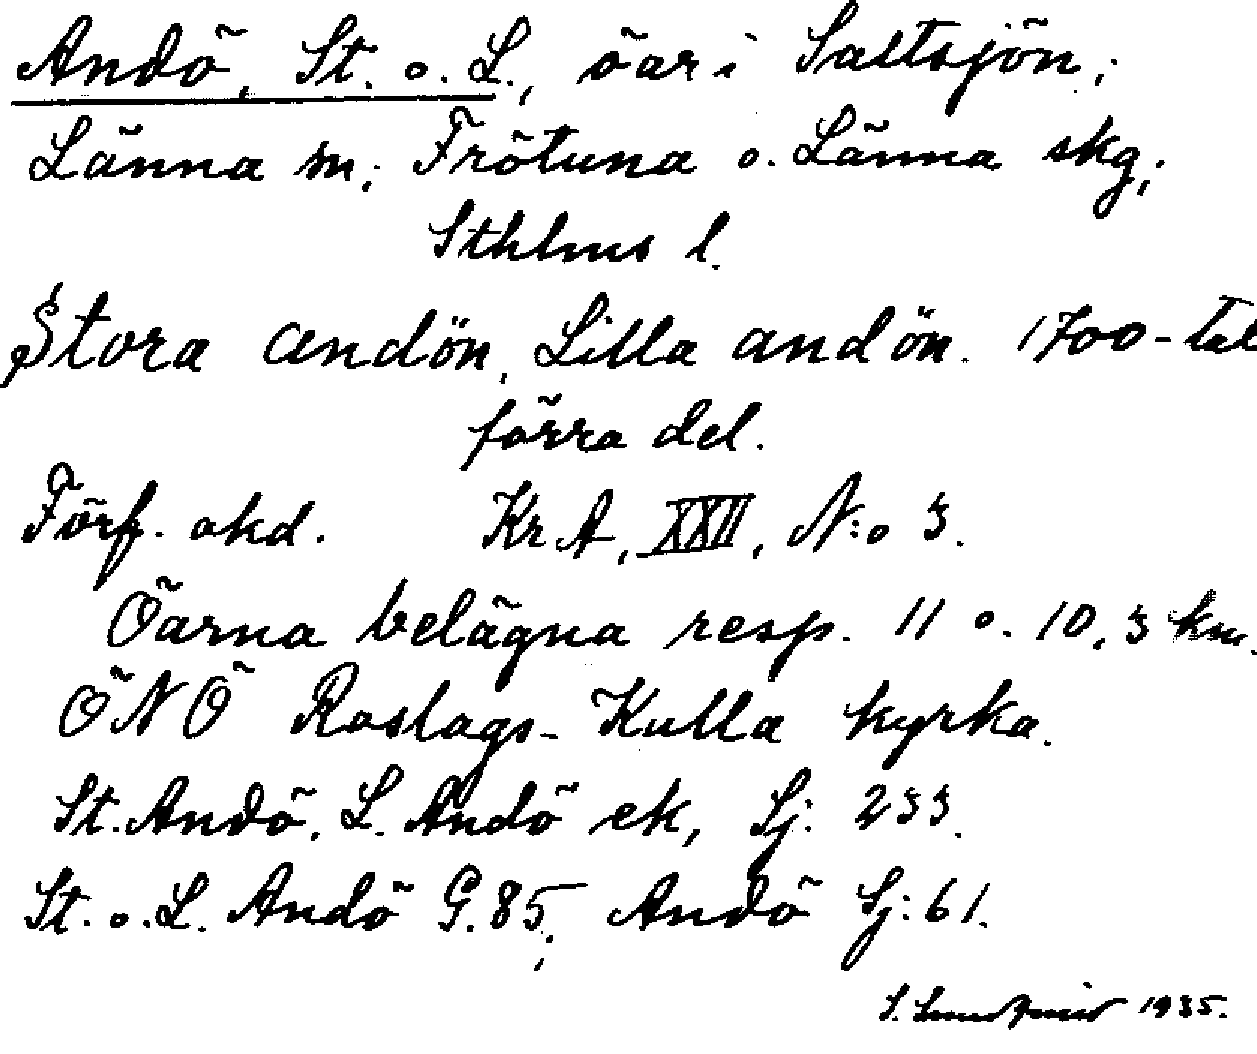 Andö, St. o. L., öar i Saltsjön;
Länna sn; Frötuna o. Länna skg;
Sthlms l.
Stora andön, Lilla andön. 1700-tal
förra del.
Förf. okd. KrA, XXII, N:o 3.
Öarna belägna resp. 11 o. 10,3 km.
ÖNÖ Roslags-Kulla kyrka.
St. Andö, L. Andö ek, Sj: 233.
St. o. L. Andö G. 85; Andö Sj: 61.
S. 1935.